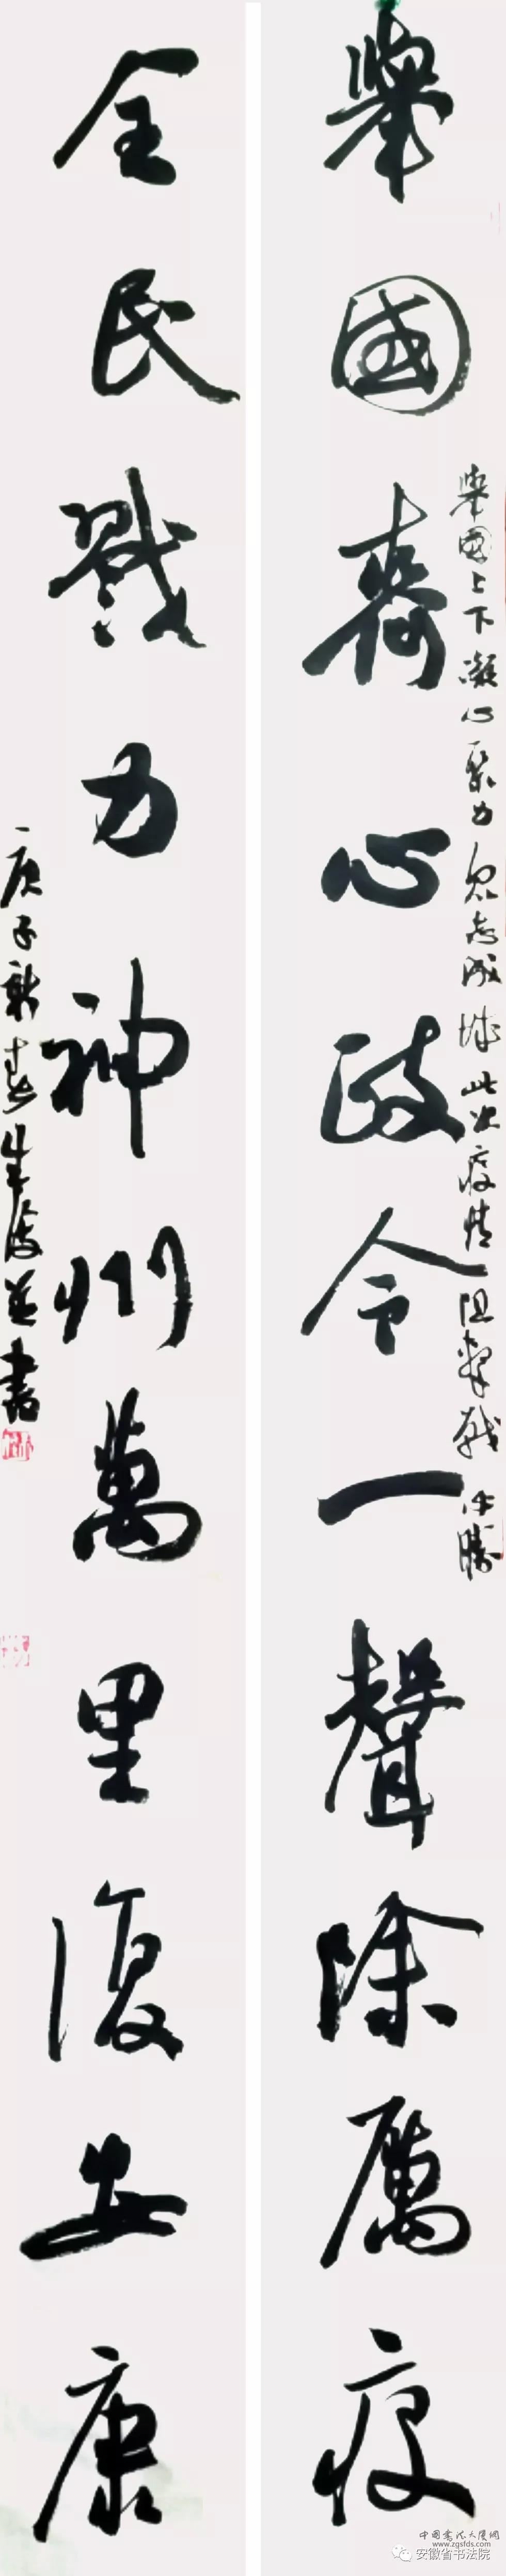 舉國上下凝心聚力眾志成城此次疫情阻擊戰必勝
舉國齊心政令一聲除厲疫
全民戮力神州萬里復安康
庚子新春
並書
中國書法大廈網
www.zgsfds.com
安徽省书法院